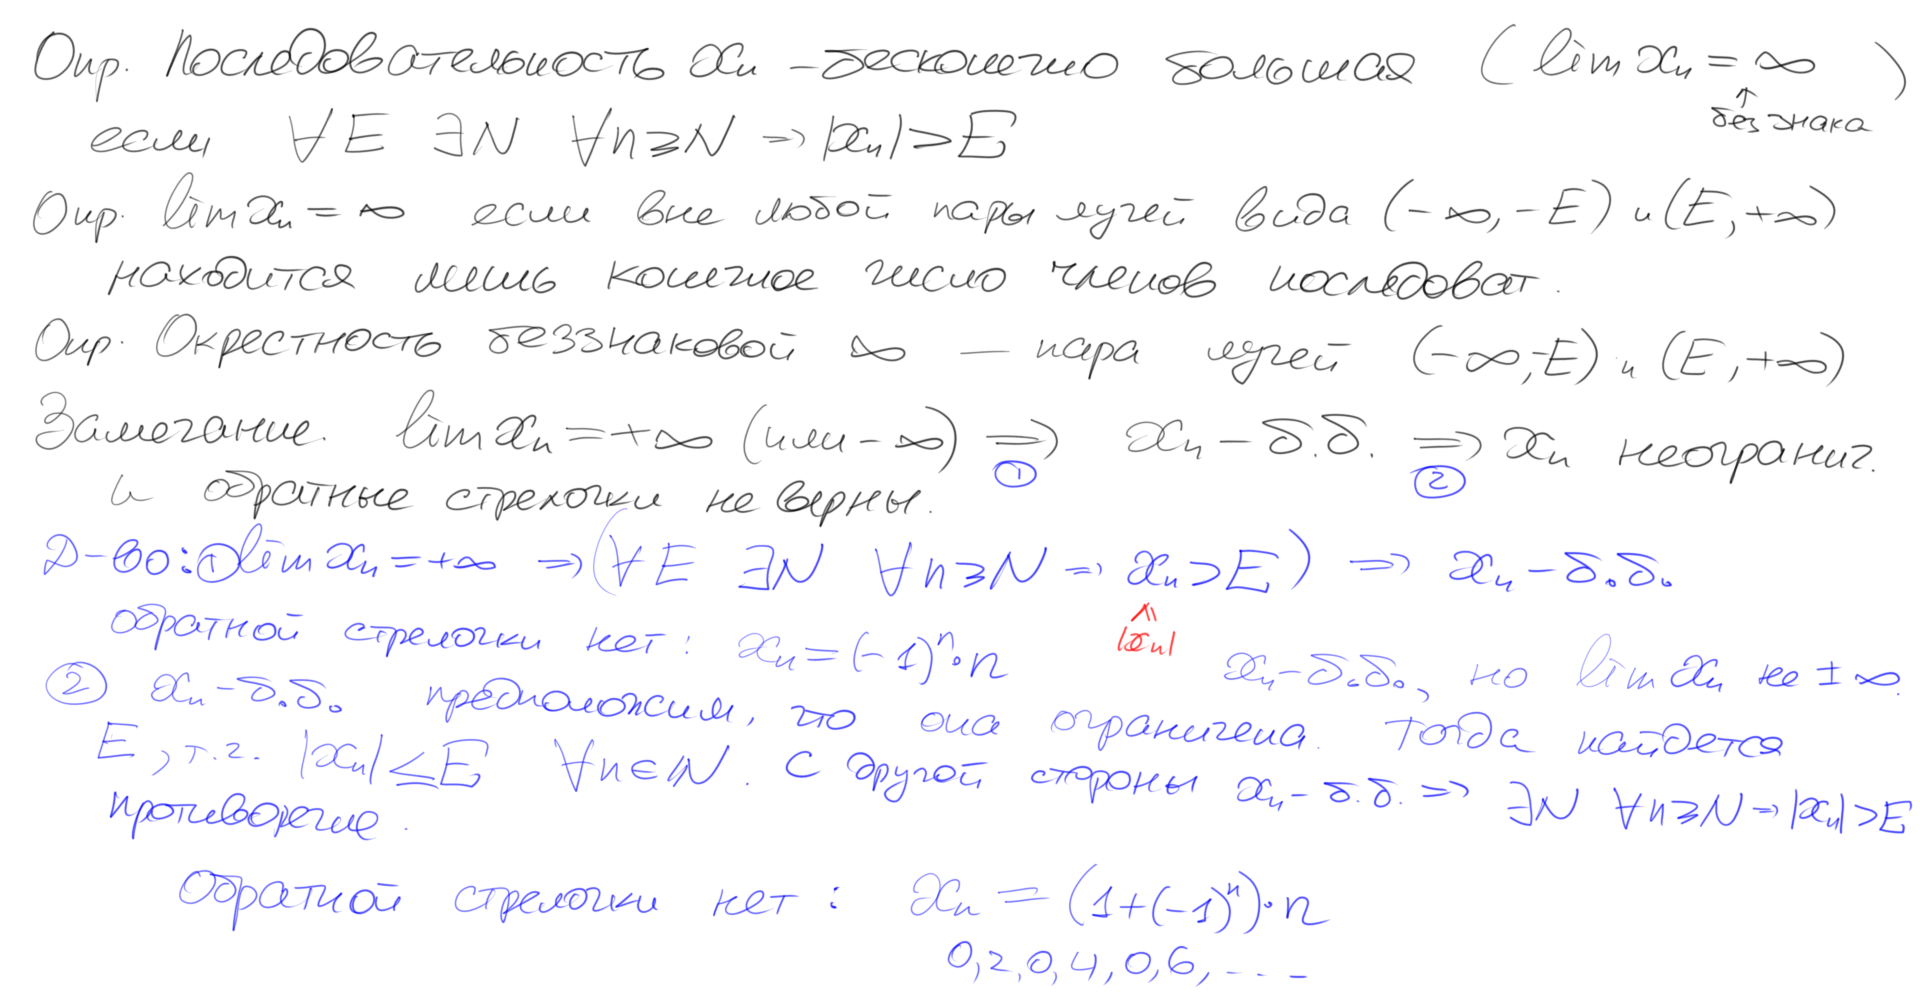 Опр. Последовательность xn – бесконечно большая (lim xn = ∞)
↑ без знака
если ∀E ∃N ∀n≥N ⇒ |xn|>E
Опр. lim xn = ∞ если вне любой пары лучей вида (-∞, -E) и (E, +∞)
находится лишь конечное число членов последоват.
Опр. Окрестность беззнаковой ∞ — пара лучей (-∞, -E) и (E, +∞)
Замечание. lim xn = +∞ (или -∞) ⇒ xn – б.б. ⇒ xn неогранич.
① ②
и обратные стрелочки не верны.
Д-во: ① lim xn = +∞ ⇒ (∀E ∃N ∀n≥N ⇒ xn>E) ⇒ xn – б.б.
|xn|
обратной стрелочки нет: xn = (-1)^n · n xn – б.б., но lim xn не ±∞.
② xn – б.б. предположим, что она ограничена. Тогда найдется
E, т.ч. |xn| ≤ E ∀n∈ℕ. С другой стороны xn – б.б. ⇒ ∃N ∀n≥N ⇒ |xn|>E
противоречие.
Обратной стрелочки нет: xn = (1+(-1)^n)·n
0, 2, 0, 4, 0, 6, ...